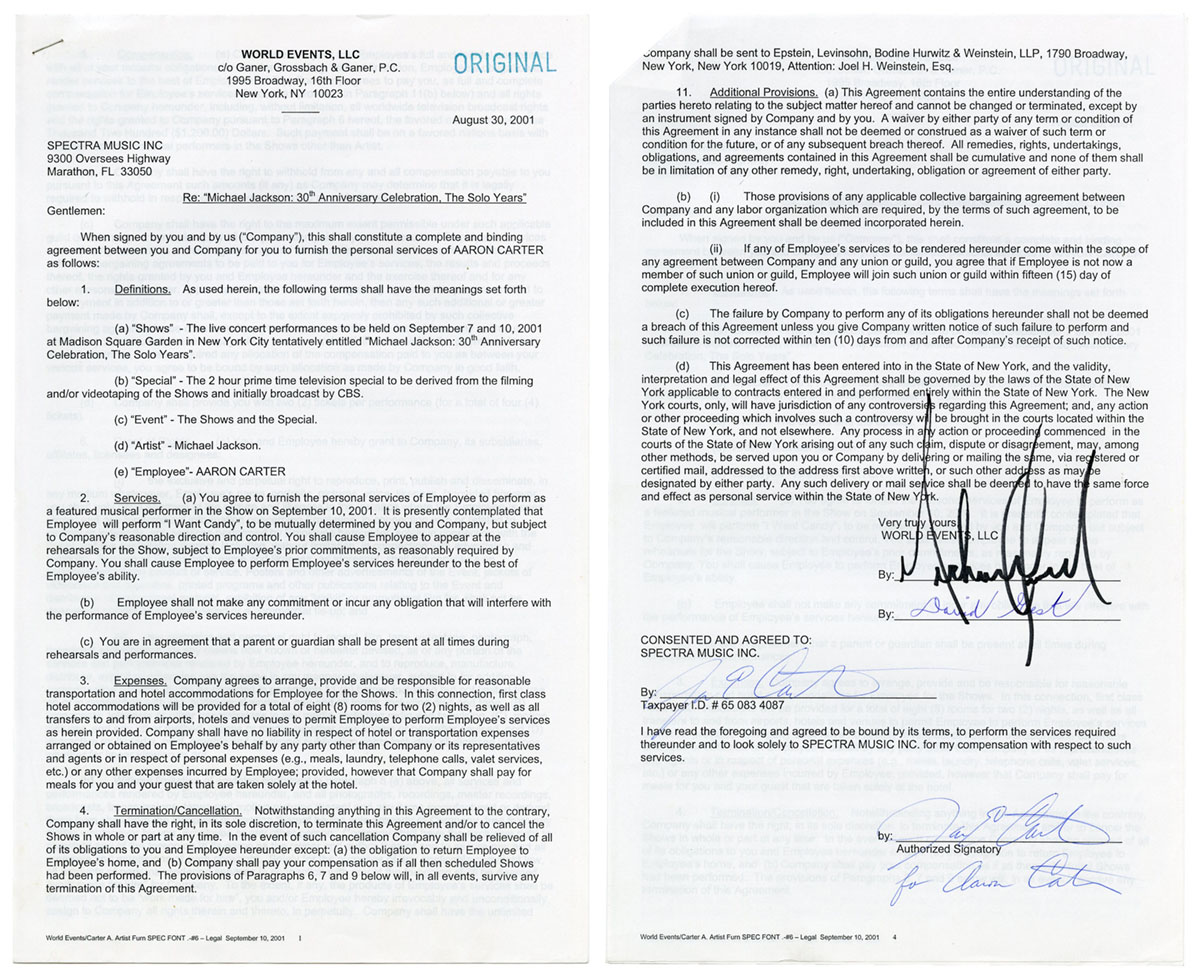 WORLD EVENTS, LLC
c/o Ganer, Grossbach & Ganer, P.C.
1995 Broadway, 16th Floor
New York, NY 10023
ORIGINAL
August 30, 2001
SPECTRA MUSIC INC
9300 Oversees Highway
Marathon, FL 33050
Re: “Michael Jackson: 30th Anniversary Celebration, The Solo Years”
Gentlemen:
When signed by you and by us (“Company”), this shall constitute a complete and binding
agreement between you and Company for you to furnish the personal services of AARON CARTER
as follows:
1. Definitions. As used herein, the following terms shall have the meanings set forth
below:
(a) “Shows” - The live concert performances to be held on September 7 and 10, 2001
at Madison Square Garden in New York City tentatively entitled “Michael Jackson: 30th Anniversary
Celebration, The Solo Years”.
(b) “Special” - The 2 hour prime time television special to be derived from the filming
and/or videotaping of the Shows and initially broadcast by CBS.
(c) “Event” - The Shows and the Special.
(d) “Artist” - Michael Jackson.
(e) “Employee”- AARON CARTER
2. Services. (a) You agree to furnish the personal services of Employee to perform as
a featured musical performer in the Show on September 10, 2001. It is presently contemplated that
Employee will perform “I Want Candy”, to be mutually determined by you and Company, but subject
to Company’s reasonable direction and control. You shall cause Employee to appear at the
rehearsals for the Show, subject to Employee’s prior commitments, as reasonably required by
Company. You shall cause Employee to perform Employee’s services hereunder to the best of
Employee’s ability.
(b) Employee shall not make any commitment or incur any obligation that will interfere with
the performance of Employee’s services hereunder.
(c) You are in agreement that a parent or guardian shall be present at all times during
rehearsals and performances.
3. Expenses. Company agrees to arrange, provide and be responsible for reasonable
transportation and hotel accommodations for Employee for the Shows. In this connection, first class
hotel accommodations will be provided for a total of eight (8) rooms for two (2) nights, as well as all
transfers to and from airports, hotels and venues to permit Employee to perform Employee’s services
as herein provided. Company shall have no liability in respect of hotel or transportation expenses
arranged or obtained on Employee’s behalf by any party other than Company or its representatives
and agents or in respect of personal expenses (e.g., meals, laundry, telephone calls, valet services,
etc.) or any other expenses incurred by Employee; provided, however that Company shall pay for
meals for you and your guest that are taken solely at the hotel.
4. Termination/Cancellation. Notwithstanding anything in this Agreement to the contrary,
Company shall have the right, in its sole discretion, to terminate this Agreement and/or to cancel the
Shows in whole or part at any time. In the event of such cancellation Company shall be relieved of all
of its obligations to you and Employee hereunder except: (a) the obligation to return Employee to
Employee’s home, and (b) Company shall pay your compensation as if all then scheduled Shows
had been performed. The provisions of Paragraphs 6, 7 and 9 below will, in all events, survive any
termination of this Agreement.
World Events/Carter A. Artist Furn SPEC FONT .-#6 – Legal September 10, 2001 1
Company shall be sent to Epstein, Levinsohn, Bodine Hurwitz & Weinstein, LLP, 1790 Broadway,
New York, New York 10019, Attention: Joel H. Weinstein, Esq.
11. Additional Provisions. (a) This Agreement contains the entire understanding of the
parties hereto relating to the subject matter hereof and cannot be changed or terminated, except by
an instrument signed by Company and by you. A waiver by either party of any term or condition of
this Agreement in any instance shall not be deemed or construed as a waiver of such term or
condition for the future, or of any subsequent breach thereof. All remedies, rights, undertakings,
obligations, and agreements contained in this Agreement shall be cumulative and none of them shall
be in limitation of any other remedy, right, undertaking, obligation or agreement of either party.
(b) (i) Those provisions of any applicable collective bargaining agreement between
Company and any labor organization which are required, by the terms of such agreement, to be
included in this Agreement shall be deemed incorporated herein.
(ii) If any of Employee’s services to be rendered hereunder come within the scope of
any agreement between Company and any union or guild, you agree that if Employee is not now a
member of such union or guild, Employee will join such union or guild within fifteen (15) day of
complete execution hereof.
(c) The failure by Company to perform any of its obligations hereunder shall not be deemed
a breach of this Agreement unless you give Company written notice of such failure to perform and
such failure is not corrected within ten (10) days from and after Company’s receipt of such notice.
(d) This Agreement has been entered into in the State of New York, and the validity,
interpretation and legal effect of this Agreement shall be governed by the laws of the State of New
York applicable to contracts entered in and performed entirely within the State of New York. The New
York courts, only, will have jurisdiction of any controversies regarding this Agreement; and, any action
or other proceeding which involves such a controversy will be brought in the courts located within the
State of New York, and not elsewhere. Any process in any action or proceeding commenced in the
courts of the State of New York arising out of any such claim, dispute or disagreement, may, among
other methods, be served upon you or Company by delivering or mailing the same, via registered or
certified mail, addressed to the address first above written, or such other address as may be
designated by either party. Any such delivery or mail service shall be deemed to have the same force
and effect as personal service within the State of New York.
Very truly yours,
WORLD EVENTS, LLC
By:
By: David Gest
CONSENTED AND AGREED TO:
SPECTRA MUSIC INC.
By:
Taxpayer I.D. # 65 083 4087
I have read the foregoing and agreed to be bound by its terms, to perform the services required
thereunder and to look solely to SPECTRA MUSIC INC. for my compensation with respect to such
services.
by:
Authorized Signatory
for Aaron Carter
World Events/Carter A. Artist Furn SPEC FONT .-#6 – Legal September 10, 2001 4